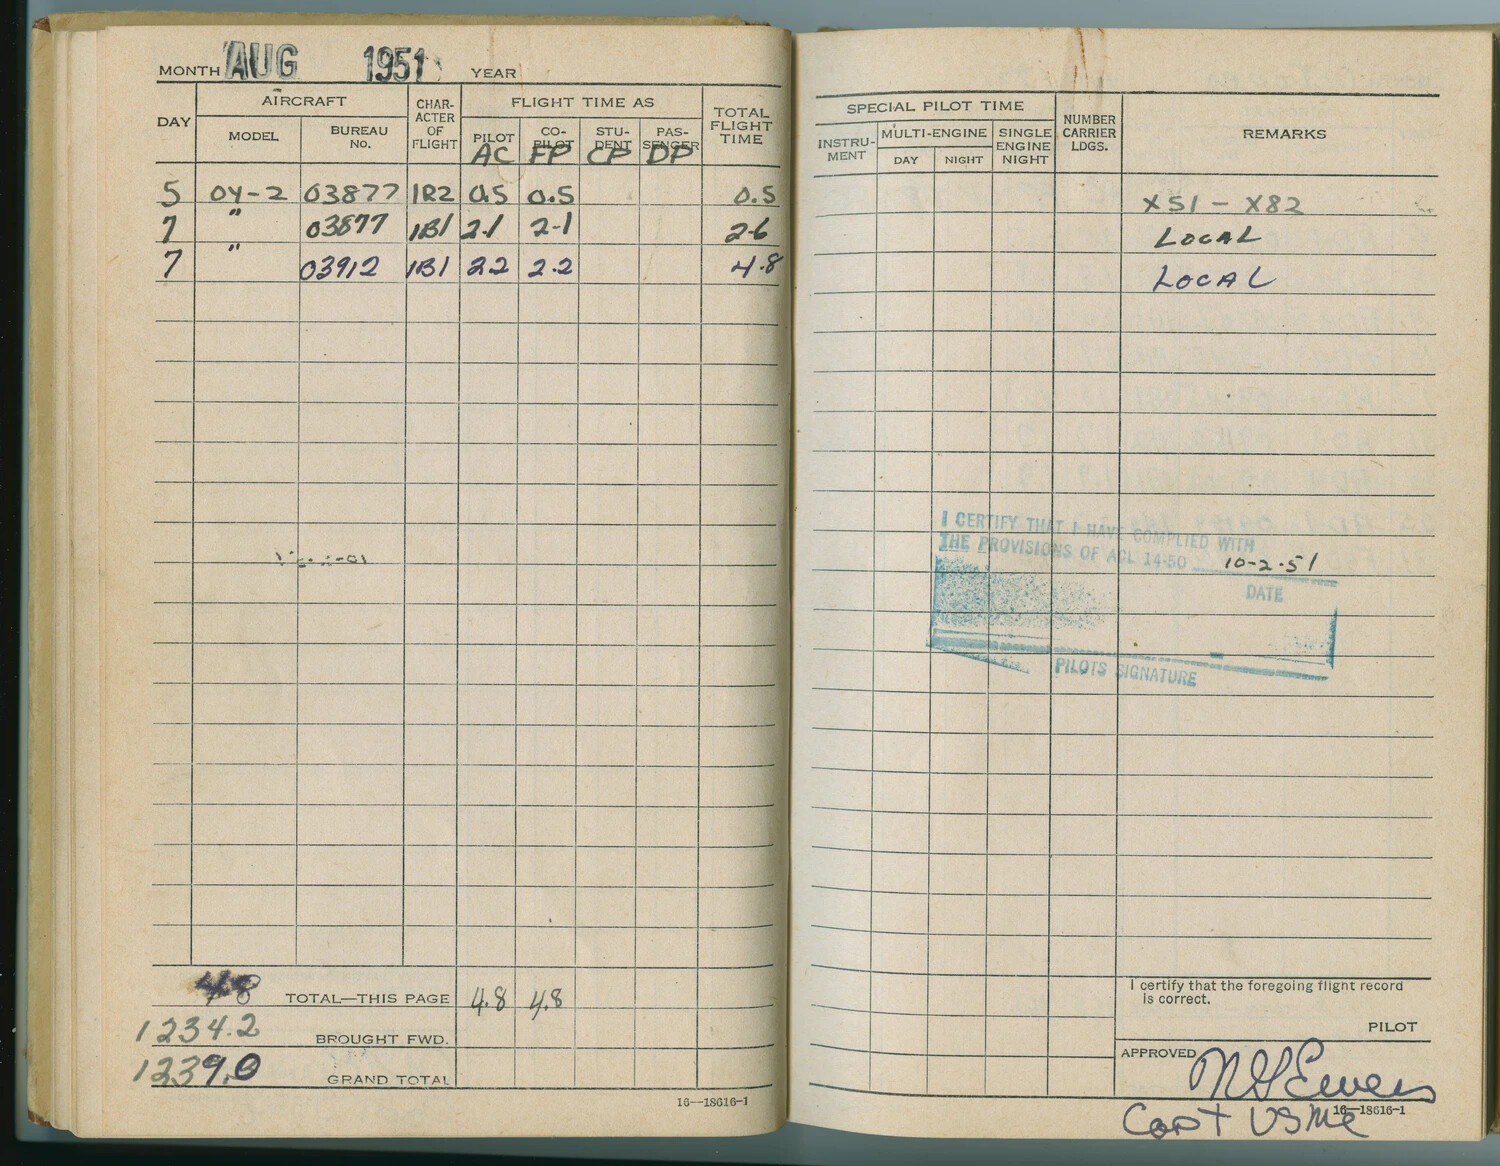 MONTH AUG 1951 YEAR
DAY AIRCRAFT CHAR-ACTER OF FLIGHT FLIGHT TIME AS TOTAL FLIGHT TIME
MODEL BUREAU NO. PILOT CO-PILOT STU-DENT PAS-SENGER
AC FP CP DP
5 OY-2 03877 1R2 0.5 0.5 0.5
7 " 03877 1B1 2.1 2-1 2-6
7 " 03912 1B1 2.2 2.2 4.8
4.8 TOTAL—THIS PAGE 4.8 4.8
1234.2 BROUGHT FWD.
1239.0 GRAND TOTAL
16—18616-1
SPECIAL PILOT TIME NUMBER CARRIER LDGS. REMARKS
INSTRU-MENT MULTI-ENGINE SINGLE ENGINE NIGHT
DAY NIGHT
X51 - X82
LOCAL
LOCAL
I CERTIFY THAT I HAVE COMPLIED WITH
THE PROVISIONS OF ACL 14-50 10-2-51
DATE
PILOTS SIGNATURE
I certify that the foregoing flight record
is correct.
PILOT
APPROVED
16—18616-1
Capt USMC